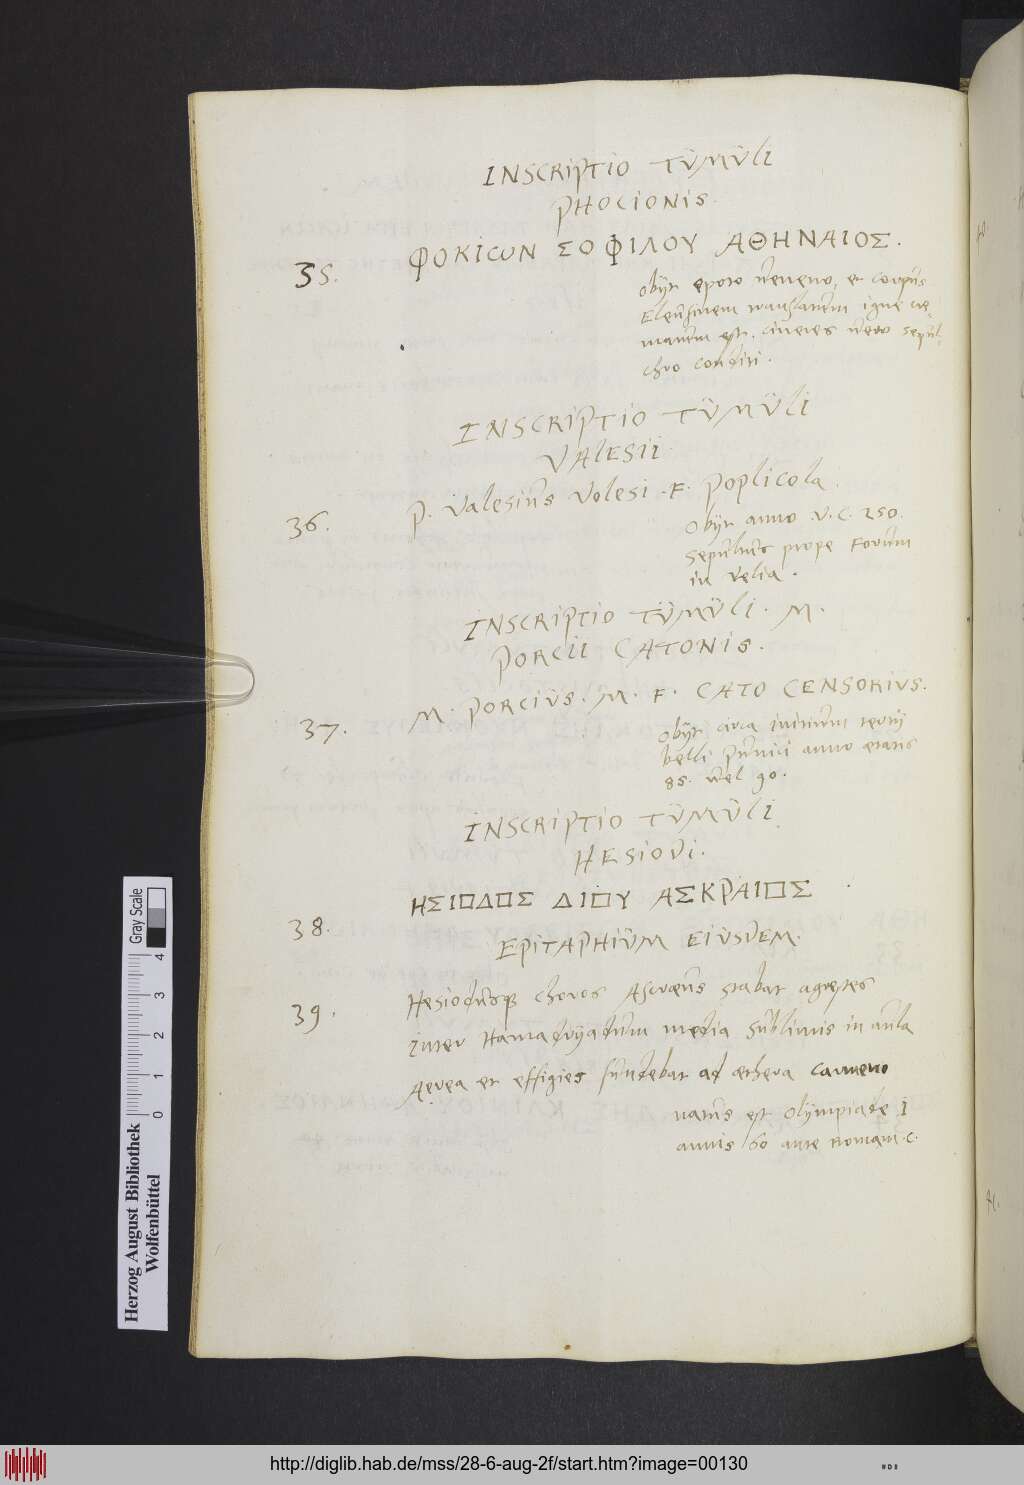 INSCRIPTIO TÜMÜLI
PHOCIONIS.
35.
ΦΟΚΙΩΝ ΣΟΦΙΛΟΥ ΑΘΗΝΑΙΟΣ.
obijt epoto ueneno, et corpus
Eleusinem translatum igne cre-
matum est. cineres uero sepul-
chro conditi.
INSCRIPTIO TÜMÜLI
VALESII.
36.
P. Valesius Volesi .F. Poplicola.
Obijt anno V.C. 250.
Sepultus prope Forum
in Velia.
INSCRIPTIO TÜMÜLI. M.
PORCII CATONIS.
37.
M. PORCIÜS. M. F. CATO CENSORIÜS.
obijt circa initium tertij
belli Punici anno ætatis
85. uel 90.
INSCRIPTIO TÜMÜLI
HESIODI.
38.
ΗΣΙΟΔΟΣ ΔΙΟΥ ΑΣΚΡΑΙΟΣ.
EPITAPHIÜM EIÜSDEM.
39.
Hesiodusq choros Ascræus stabat agrestes
Inter Hamadryadum media sublimis in aula
Aerea et effigies fundebat ad æthera carmen
natus est Olympiade I
annis 60 ante Romam .C.
Gray Scale
0 1 2 3 4
Herzog August Bibliothek
Wolfenbüttel
http://diglib.hab.de/mss/28-6-aug-2f/start.htm?image=00130